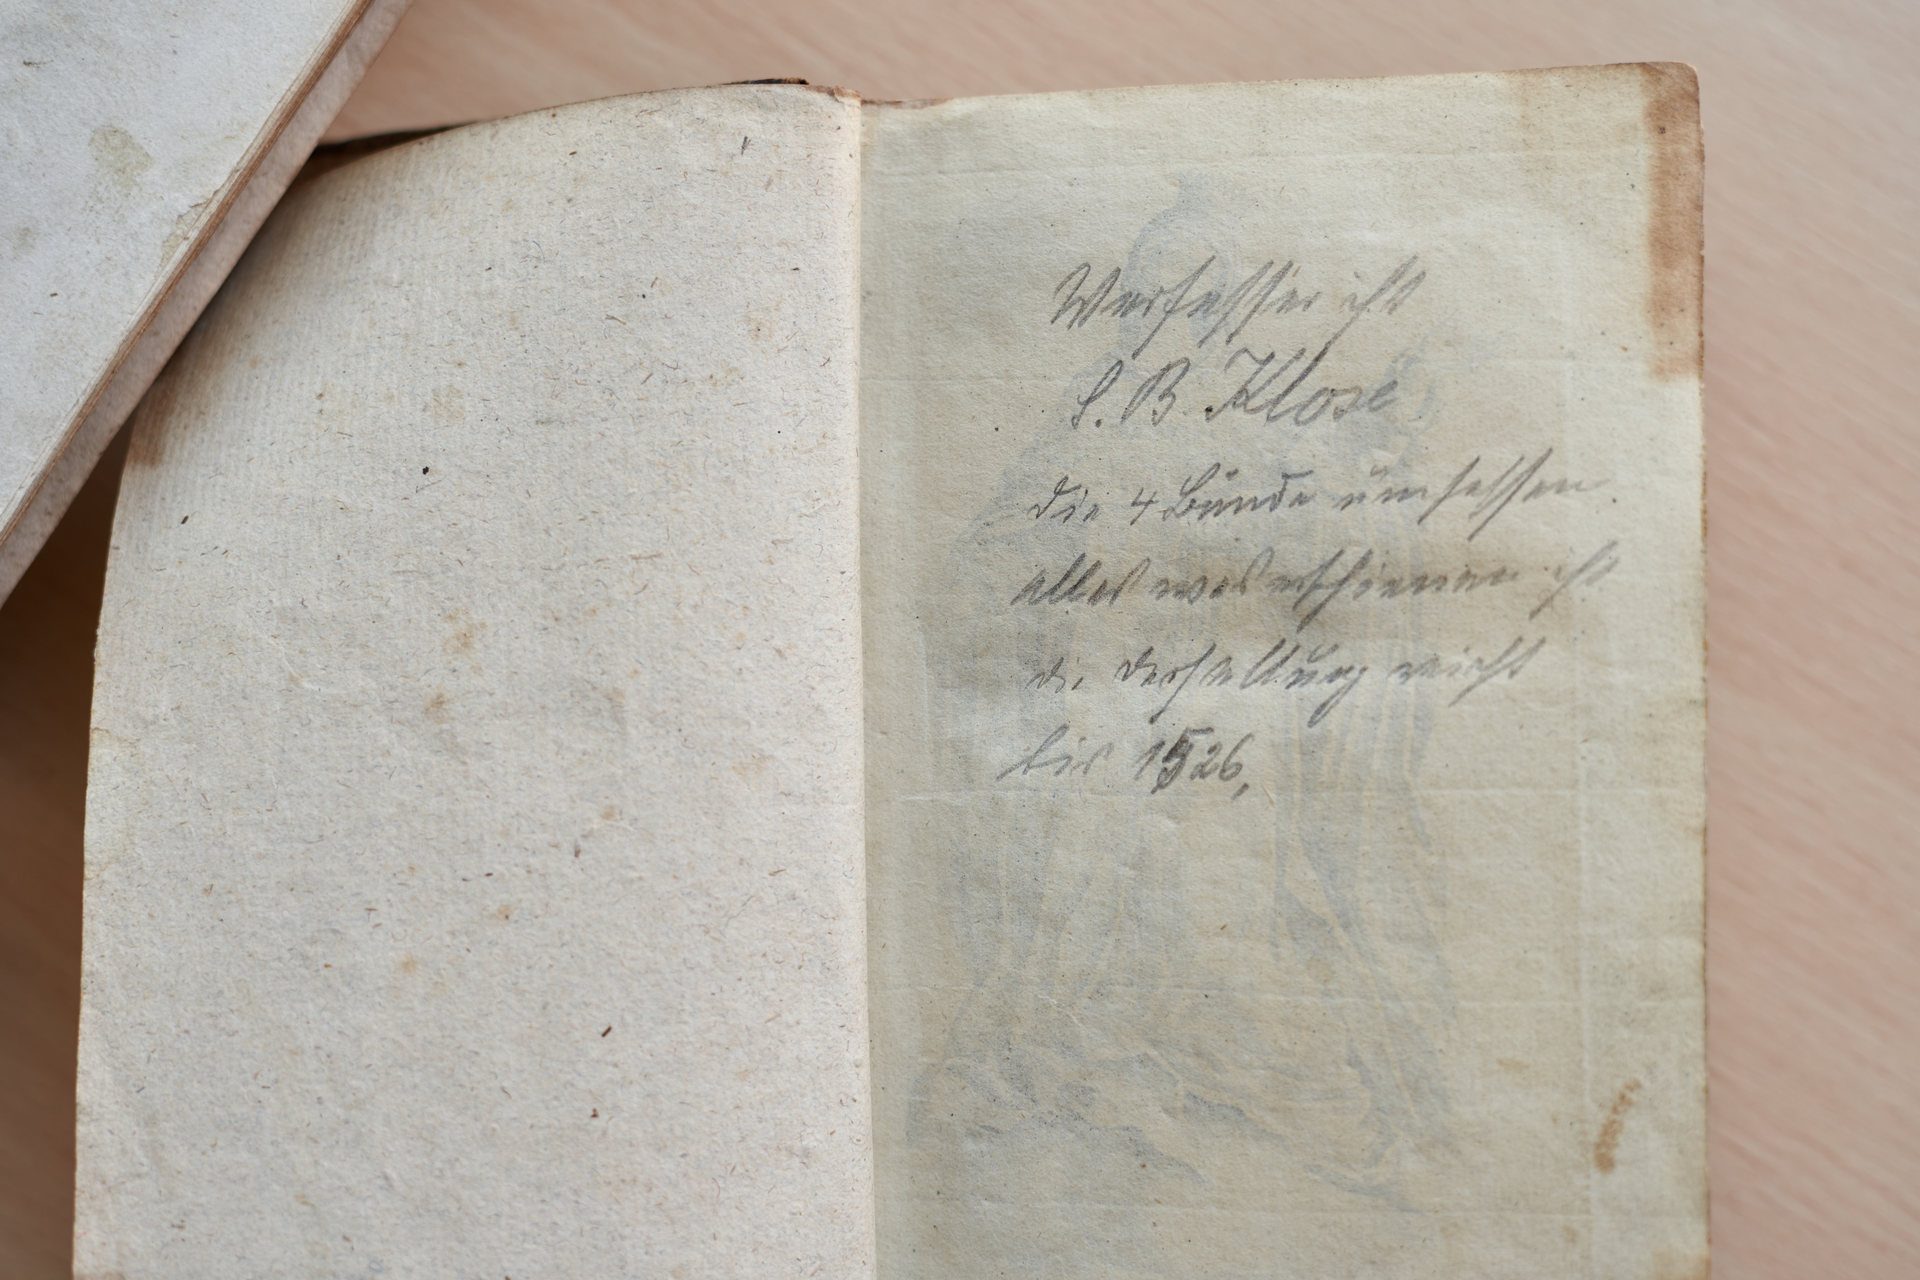 Verfasser ist
S. B Klose
die 4 Bände umfassen
alles was erschienen ist
die Darstellung reicht
bis 1526,